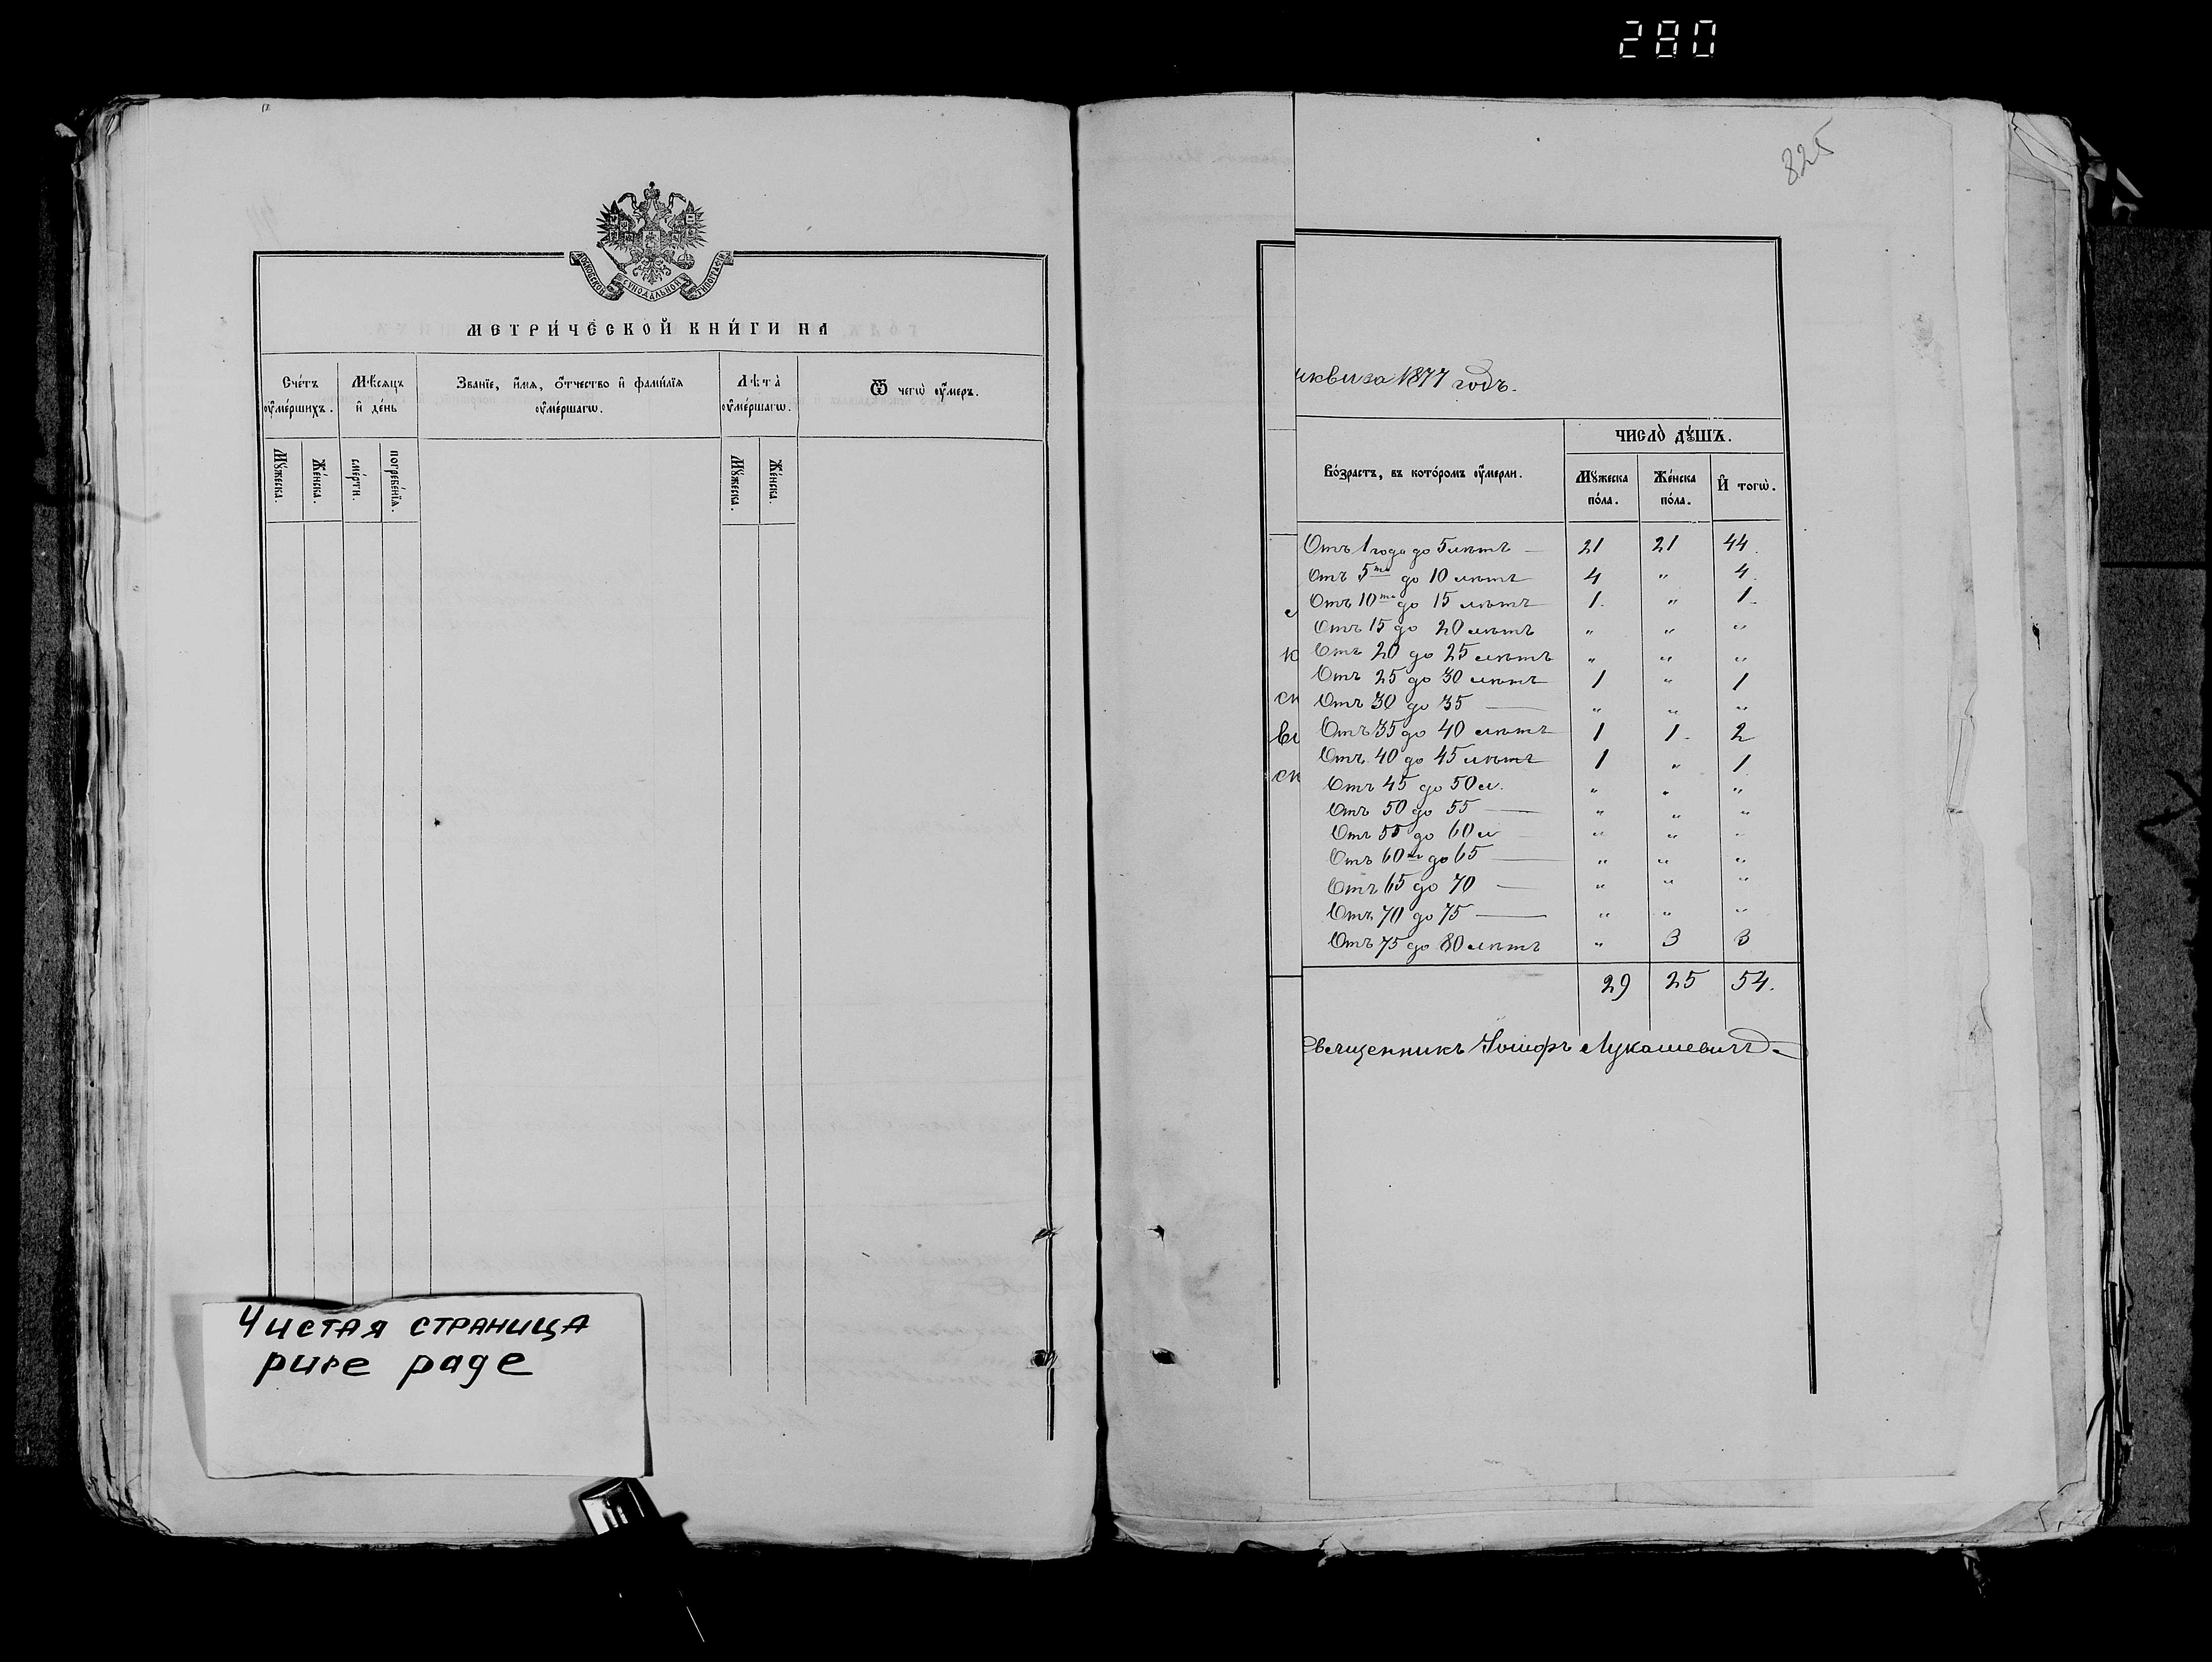 280
825
МОСКОВСКОЙ СѴНОДАЛЬНОЙ ТИПОГРАФІИ
МЕТРИ́ЧЕСКОЙ КНИ́ГИ НА
Сче́тъ ᲂу҆ме́ршихъ.
Мѣ́сѧцъ и҆ де́нь
Зва́нїе, и҆́мѧ, ѻ҆́тчество и҆ фами́лїѧ ᲂу҆ме́ршагѡ.
Лѣ́та ᲂу҆ме́ршагѡ.
Ѿ чегѡ̀ ᲂу҆́меръ.
Мꙋ́жеска.
Же́нска.
сме́рти.
погребе́нїѧ.
Мꙋ́жеска.
Же́нска.
Чистая страница
pure page
за 1877 годъ.
Во́зрастъ, въ кото́ромъ ᲂу҆́мерли.
ЧИСЛО̀ ДꙊ́ШЪ.
Мꙋ́жеска по́ла.
Же́нска по́ла.
И҆ тогѡ̀.
Отъ 1 года до 5 лѣтъ — 21 21 44.
Отъ 5ти до 10 лѣтъ 4 " 4.
Отъ 10ти до 15 лѣтъ 1. " 1.
Отъ 15 до 20 лѣтъ " " "
Отъ 20 до 25 лѣтъ " " "
Отъ 25 до 30 лѣтъ 1 " 1
Отъ 30 до 35 — " " "
Отъ 35 до 40 лѣтъ 1 1. 2
Отъ 40 до 45 лѣтъ 1 " 1.
Отъ 45 до 50 л. " " "
Отъ 50 до 55 — " " "
Отъ 55 до 60 л " " "
Отъ 60ти до 65 — " " "
Отъ 65 до 70 — " " "
Отъ 70 до 75 — " " "
Отъ 75 до 80 лѣтъ " 3 3
29 25 54.
Священникъ Іосифъ Лукашевичъ